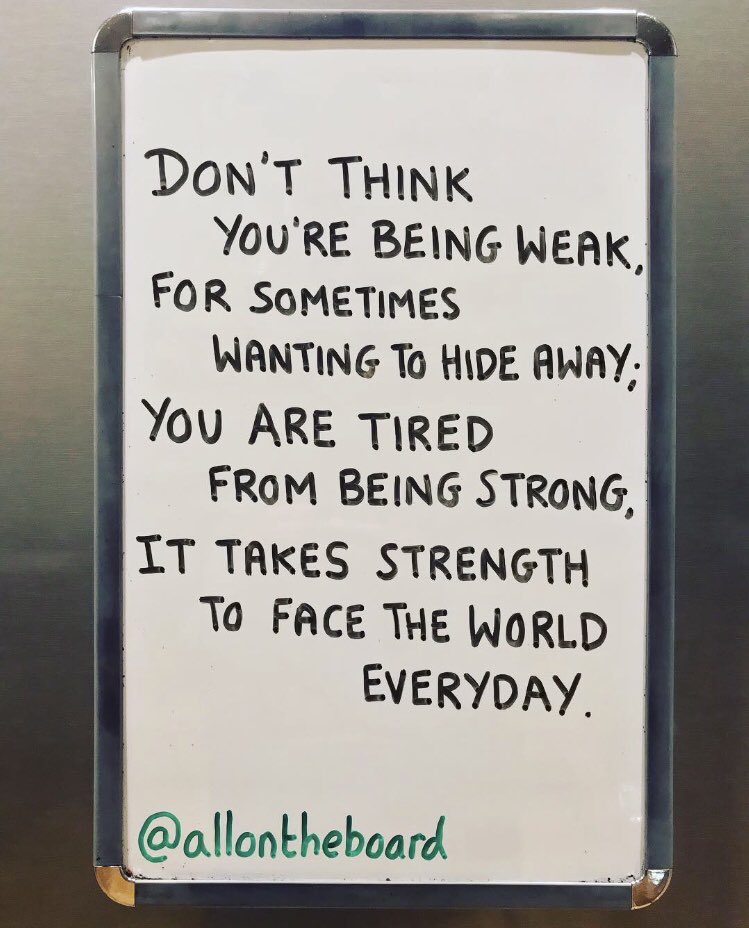 DON'T THINK
YOU'RE BEING WEAK,
FOR SOMETIMES
WANTING TO HIDE AWAY;
YOU ARE TIRED
FROM BEING STRONG,
IT TAKES STRENGTH
TO FACE THE WORLD
EVERYDAY.
@allontheboard